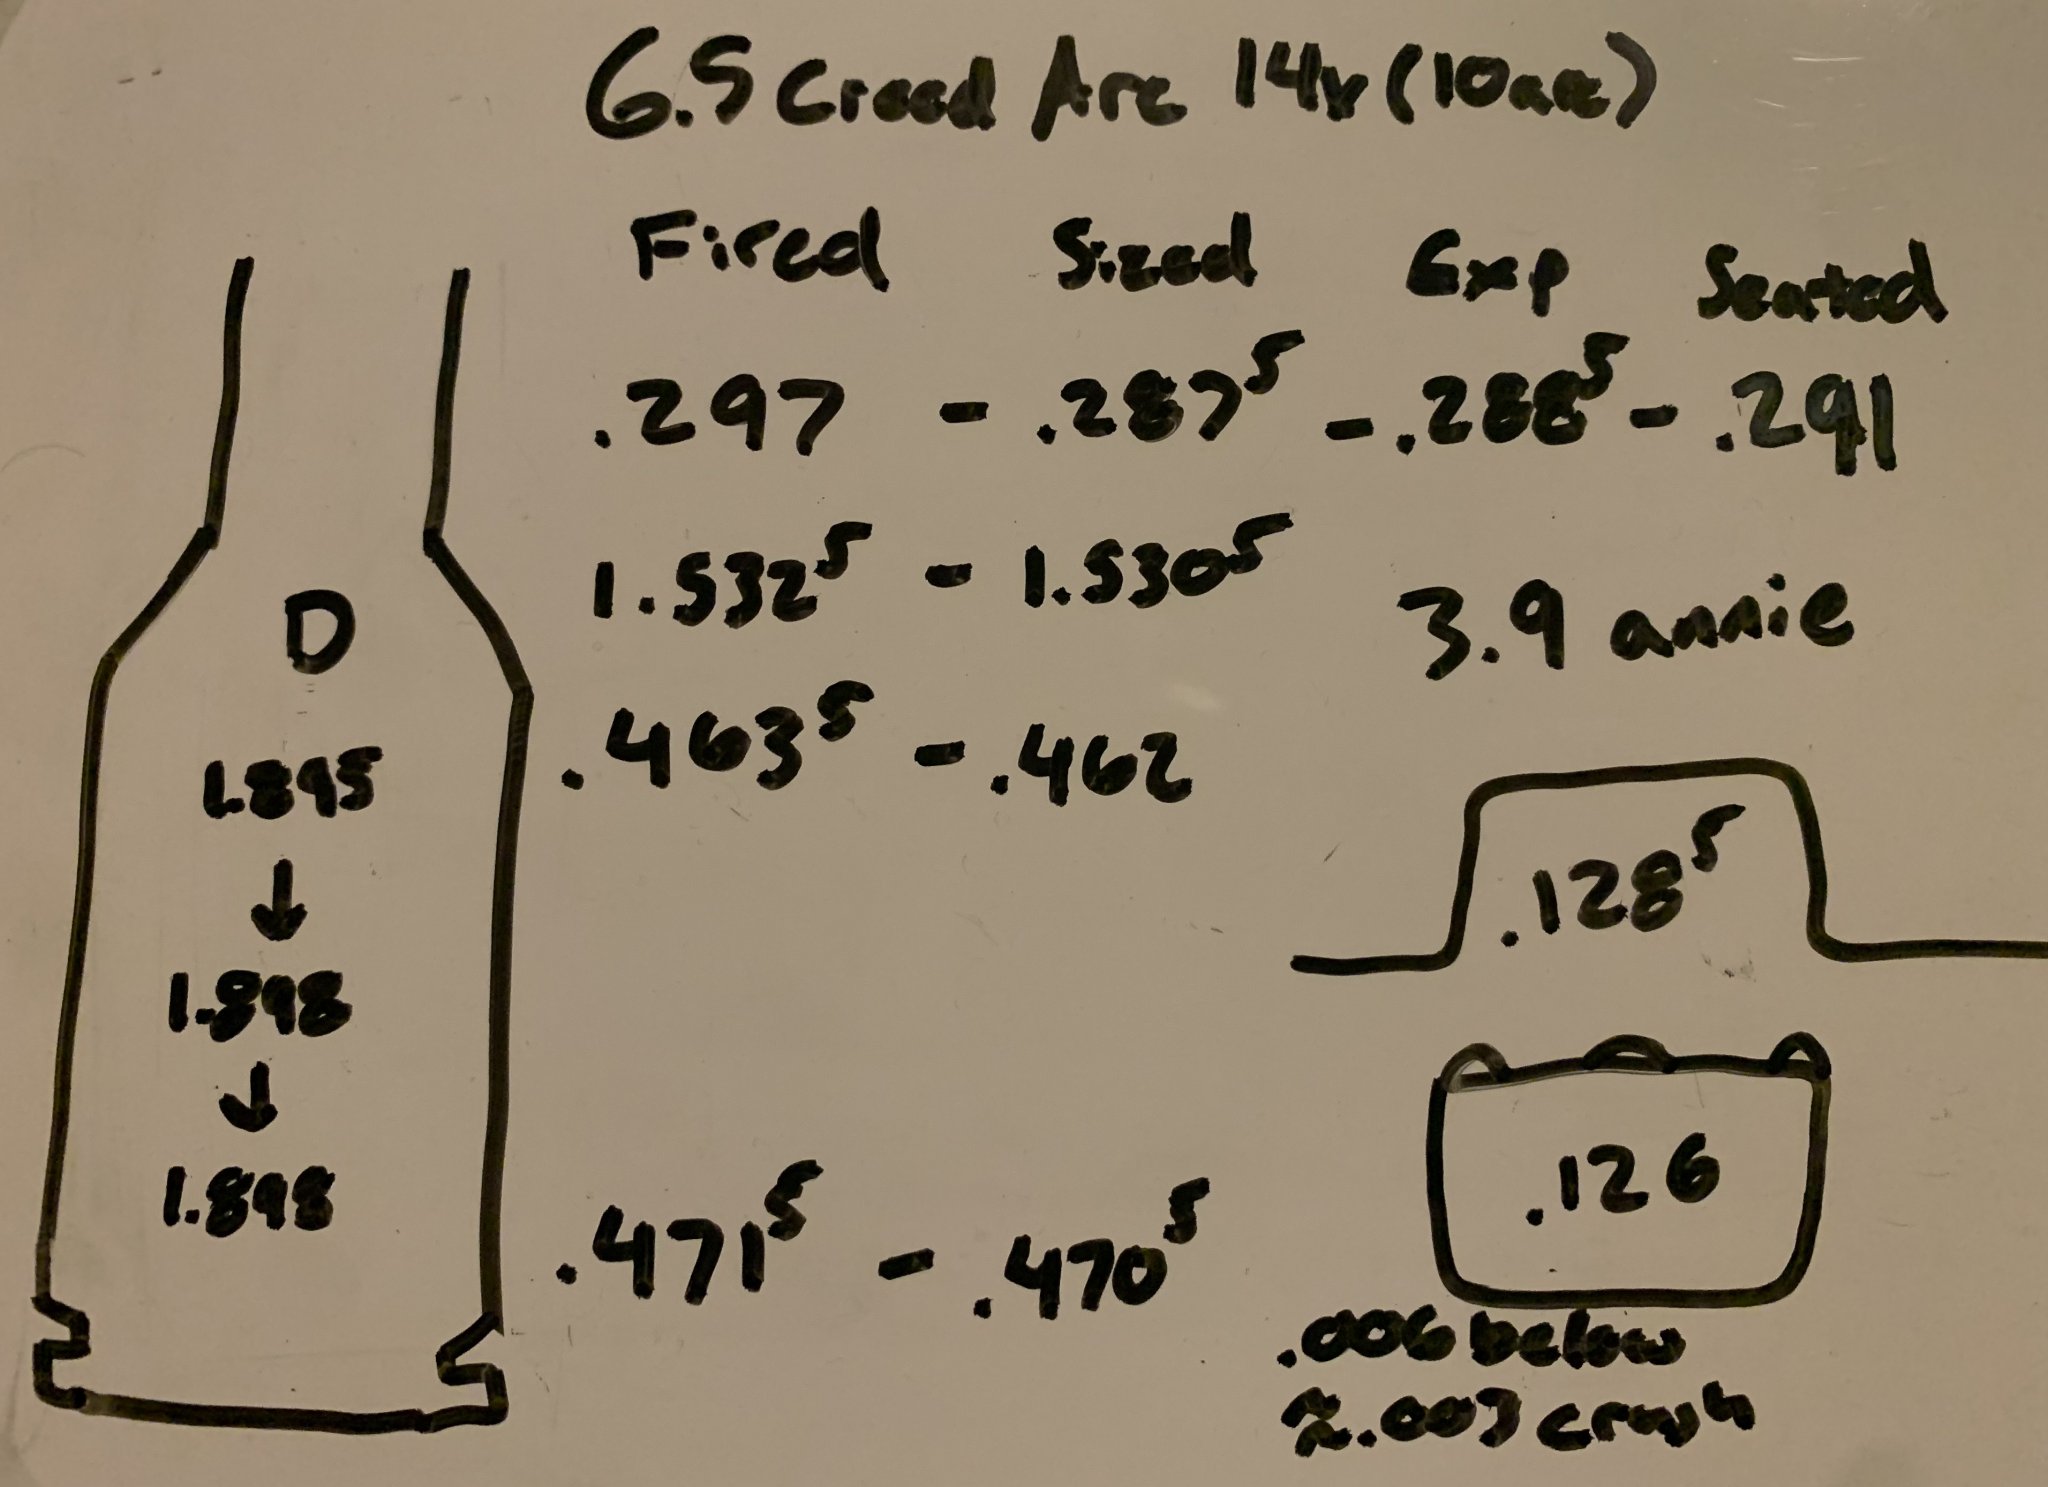 6.5 Creed Arc 14x (10are)
Fired Sized Exp Seated
.297 - .287⁵ - .288⁵ - .291
1.532⁵ - 1.530⁵
3.9 annie
D
.463⁵ - .462
1.895
↓
1.898
↓
1.898
.128⁵
.126
.471⁵ - .470⁵
.006 below
≈.003 crush